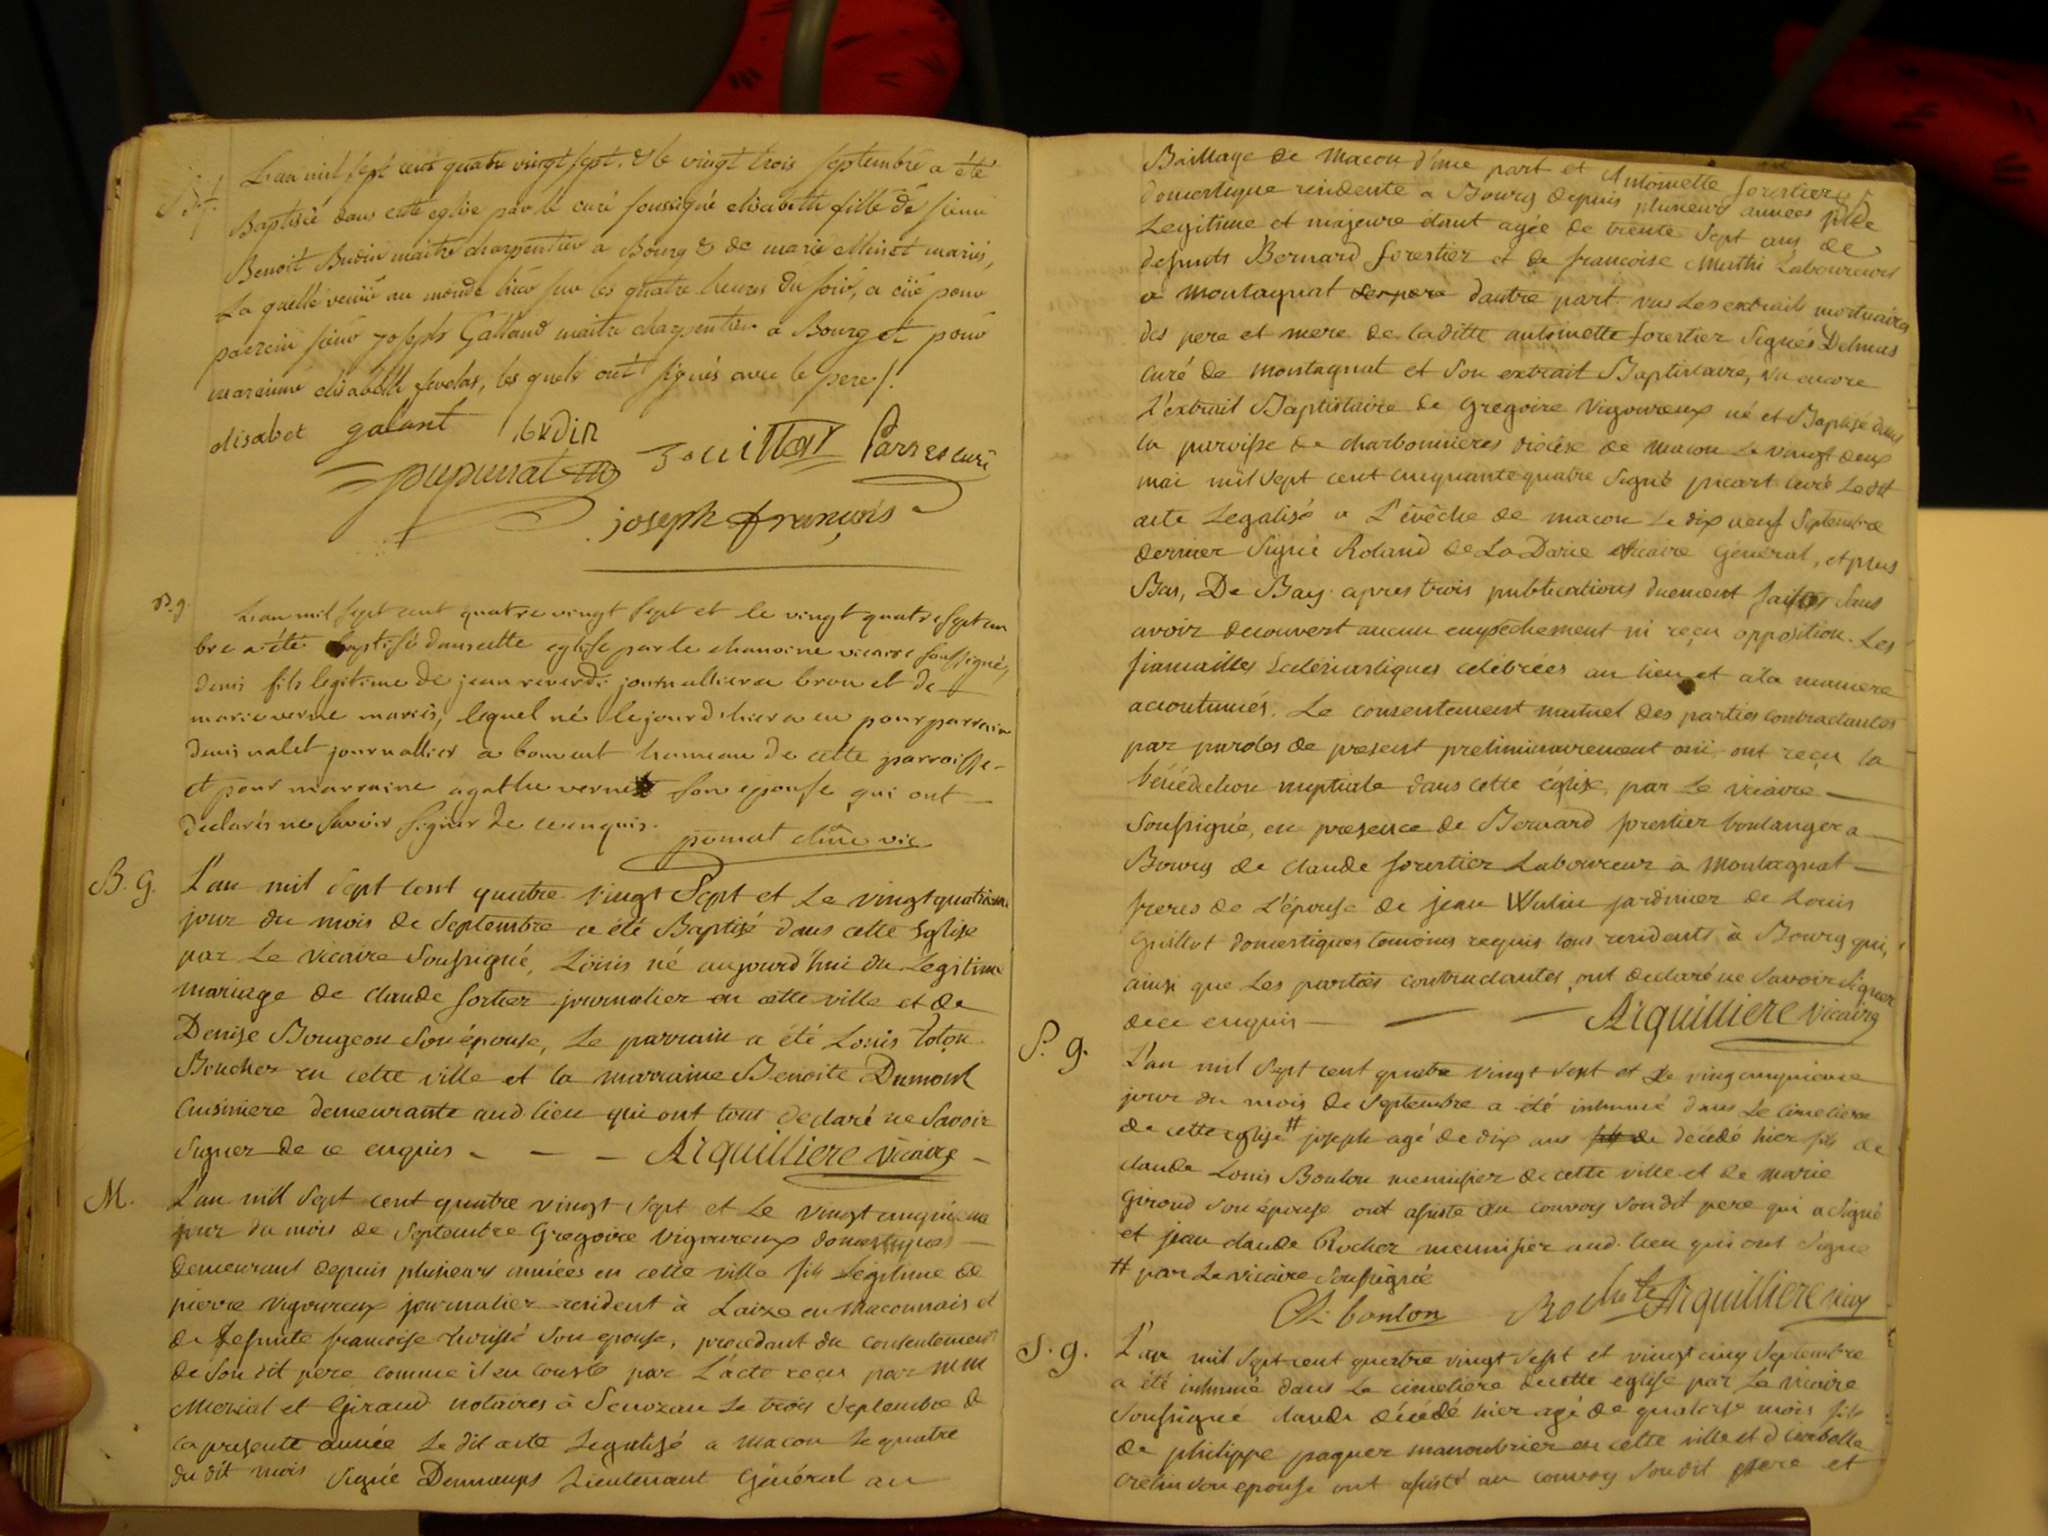 L'an mil sept cent quatre vingt sept, & le vingt trois septembre a été
Baptisée dans cette eglise par le curé soussigné elisabeth fille de sieur
Benoit Budin maitre charpentier a Bourg & de marie mariés,
La quelle venüe au monde hier sur les quatre heures du soir, a eüe pour
parrein sieur joseph Galland maitre charpentier a Bourg et pour
marainne elisabeth les quels ont signés avec le pere /.
elisabet galant budin
joseph françois
B. g.
L'an mil sept cent quatre vingt sept et le vingt quatre septem
bre a été baptisé dans cette eglise par le chanoine vicaire soussigné,
denis fils legitime de jean reverdi journallier a brou et de
marie verne mariés, lequel né le jour d'hier a eu pour parrain
denis valet journallier a hameau de cette parroisse
et pour marraine agathe son epouse qui ont
declarés ne savoir signer de ce enquis.
B. g.
L'an mil sept cent quatre vingt sept et le vingt quatrieme
jour du mois de septembre a été Baptisé dans cette Eglise
par Le vicaire soussigné, Loüis né aujourd'hui du Legitime
mariage de claude fortier journalier en cette ville et de
Denise Bougeon son épouse, Le parrain a été Louis
Boucher en cette ville et la marraine Benoite Dumont
Cuisiniere demeurante aud. lieu qui ont tous declaré ne savoir
signer de ce enquis - - - Aiguilliere vicaire -
M.
L'an mill sept cent quatre vingt sept et Le vingt cinquieme
jour du mois de septembre Gregoire Vigoureux domestique
demeurant depuis plusieurs années en cette ville fils Legitime de
pierre vigoureux journalier resident à Laize en maconnais et
de defunte francoise son epouse, procedant du consentement
de son dit pere comme il en conste par L'acte reçu par MM
et Giraud notaires à Senozan Le trois septembre de
la presente année Le dit acte Legalisé a macon le quatre
du dit mois signé Lieutenant Général au
Baillage de macon d'une part et Antoinette forestier
domestique residente a Bourg depuis plusieurs années fille
Legitime et majeure étant agée de trente sept ans de
defunts Bernard forestier et de francoise Laboureurs
a montagnat d'autre part vus Les extraits mortuaires
des pere et mere de laditte antoinette forestier signés Delmas
curé de montagnat et son extrait Baptistaire, vu encore
L'extrait Baptistaire de Gregoire Vigoureux né et Baptisé dans
la paroisse de charbonnieres diocèse de macon Le vingt deux
mai mil sept cent cinquante quatre signé picart curé Le dit
acte Legalisé a L'évêché de macon Le dix neuf septembre
dernier signé Roland de vicaire Général, et plus
Bas, De Bay apres trois publications duement faittes sans
avoir decouvert aucun empechement ni reçu opposition. Les
fiancailles Ecclésiastiques célébrées au lieu et à la maniere
accoutumés. Le consentement mutuel des parties contractantes
par paroles de present preliminairement oüi ont reçu la
bénédiction nuptiale dans cette église, par Le vicaire
soussigné, en presence de Bernard forestier boulanger a
Bourg de claude forestier Laboureur à Montagnat
freres de L'épouse de jean jardinier de Louis
Guillot domestiques temoins requis tous residents à Bourg qui,
ainsi que Les parties contractantes, ont declaré ne savoir signer
de ce enquis - Aiguilliere vicaire
S. g.
L'an mil sept cent quatre vingt sept et Le vingcinquieme
jour du mois de septembre a été inhumé dans Le cimetiere
de cette eglise # joseph agé de dix ans fils de décédé hier fils de
claude Louis Bouton menuisier de cette ville et de marie
Giroud son épouse ont assisté au convoy son dit pere qui a signé
et jean claude Rocher menuisier aud. lieu qui ont signé
# par Le vicaire soussigné
bouton Aiguilliere vicaire
S. g.
L'an mil sept cent quatre vingt sept et vingt cinq septembre
a été inhumé dans Le cimetiere de cette eglise par Le vicaire
soussigné claude décédé hier agé de quatorse mois fils
de philippe paquer manoubrier en cette ville et
son epouse ont assisté au convoy son dit pere et